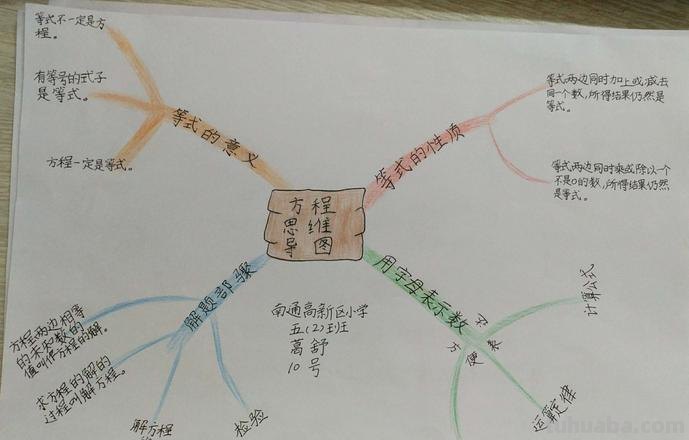 等式不一定是方
程。
有等号的式子
是等式。
方程一定是等式。
等式的意义
等式的性质
等式两边同时加上或减去
同一个数,所得结果仍然是
等式。
等式两边同时乘或除以一个
不是0的数,所得结果仍然
是等式。
方程
思维
导图
解题部骤
方程两边相等
的未知数的
值叫作方程的解。
求方程的解的
过程叫解方程。
解方程
检验
南通高新区小学
五(2)班
葛舒
10号
用字母表示数
方便
计算公式
运算定律
tuhuaba.com